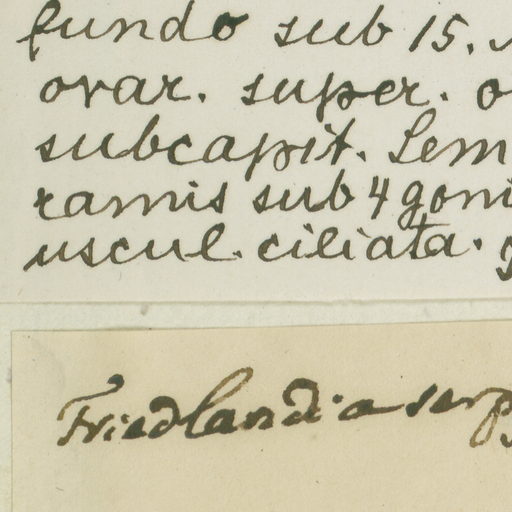 fundo sub 15.
ovar. super. o
subcapit. Sem
ramis sub 4 goni
uscul. ciliata.
Friedlandia serp